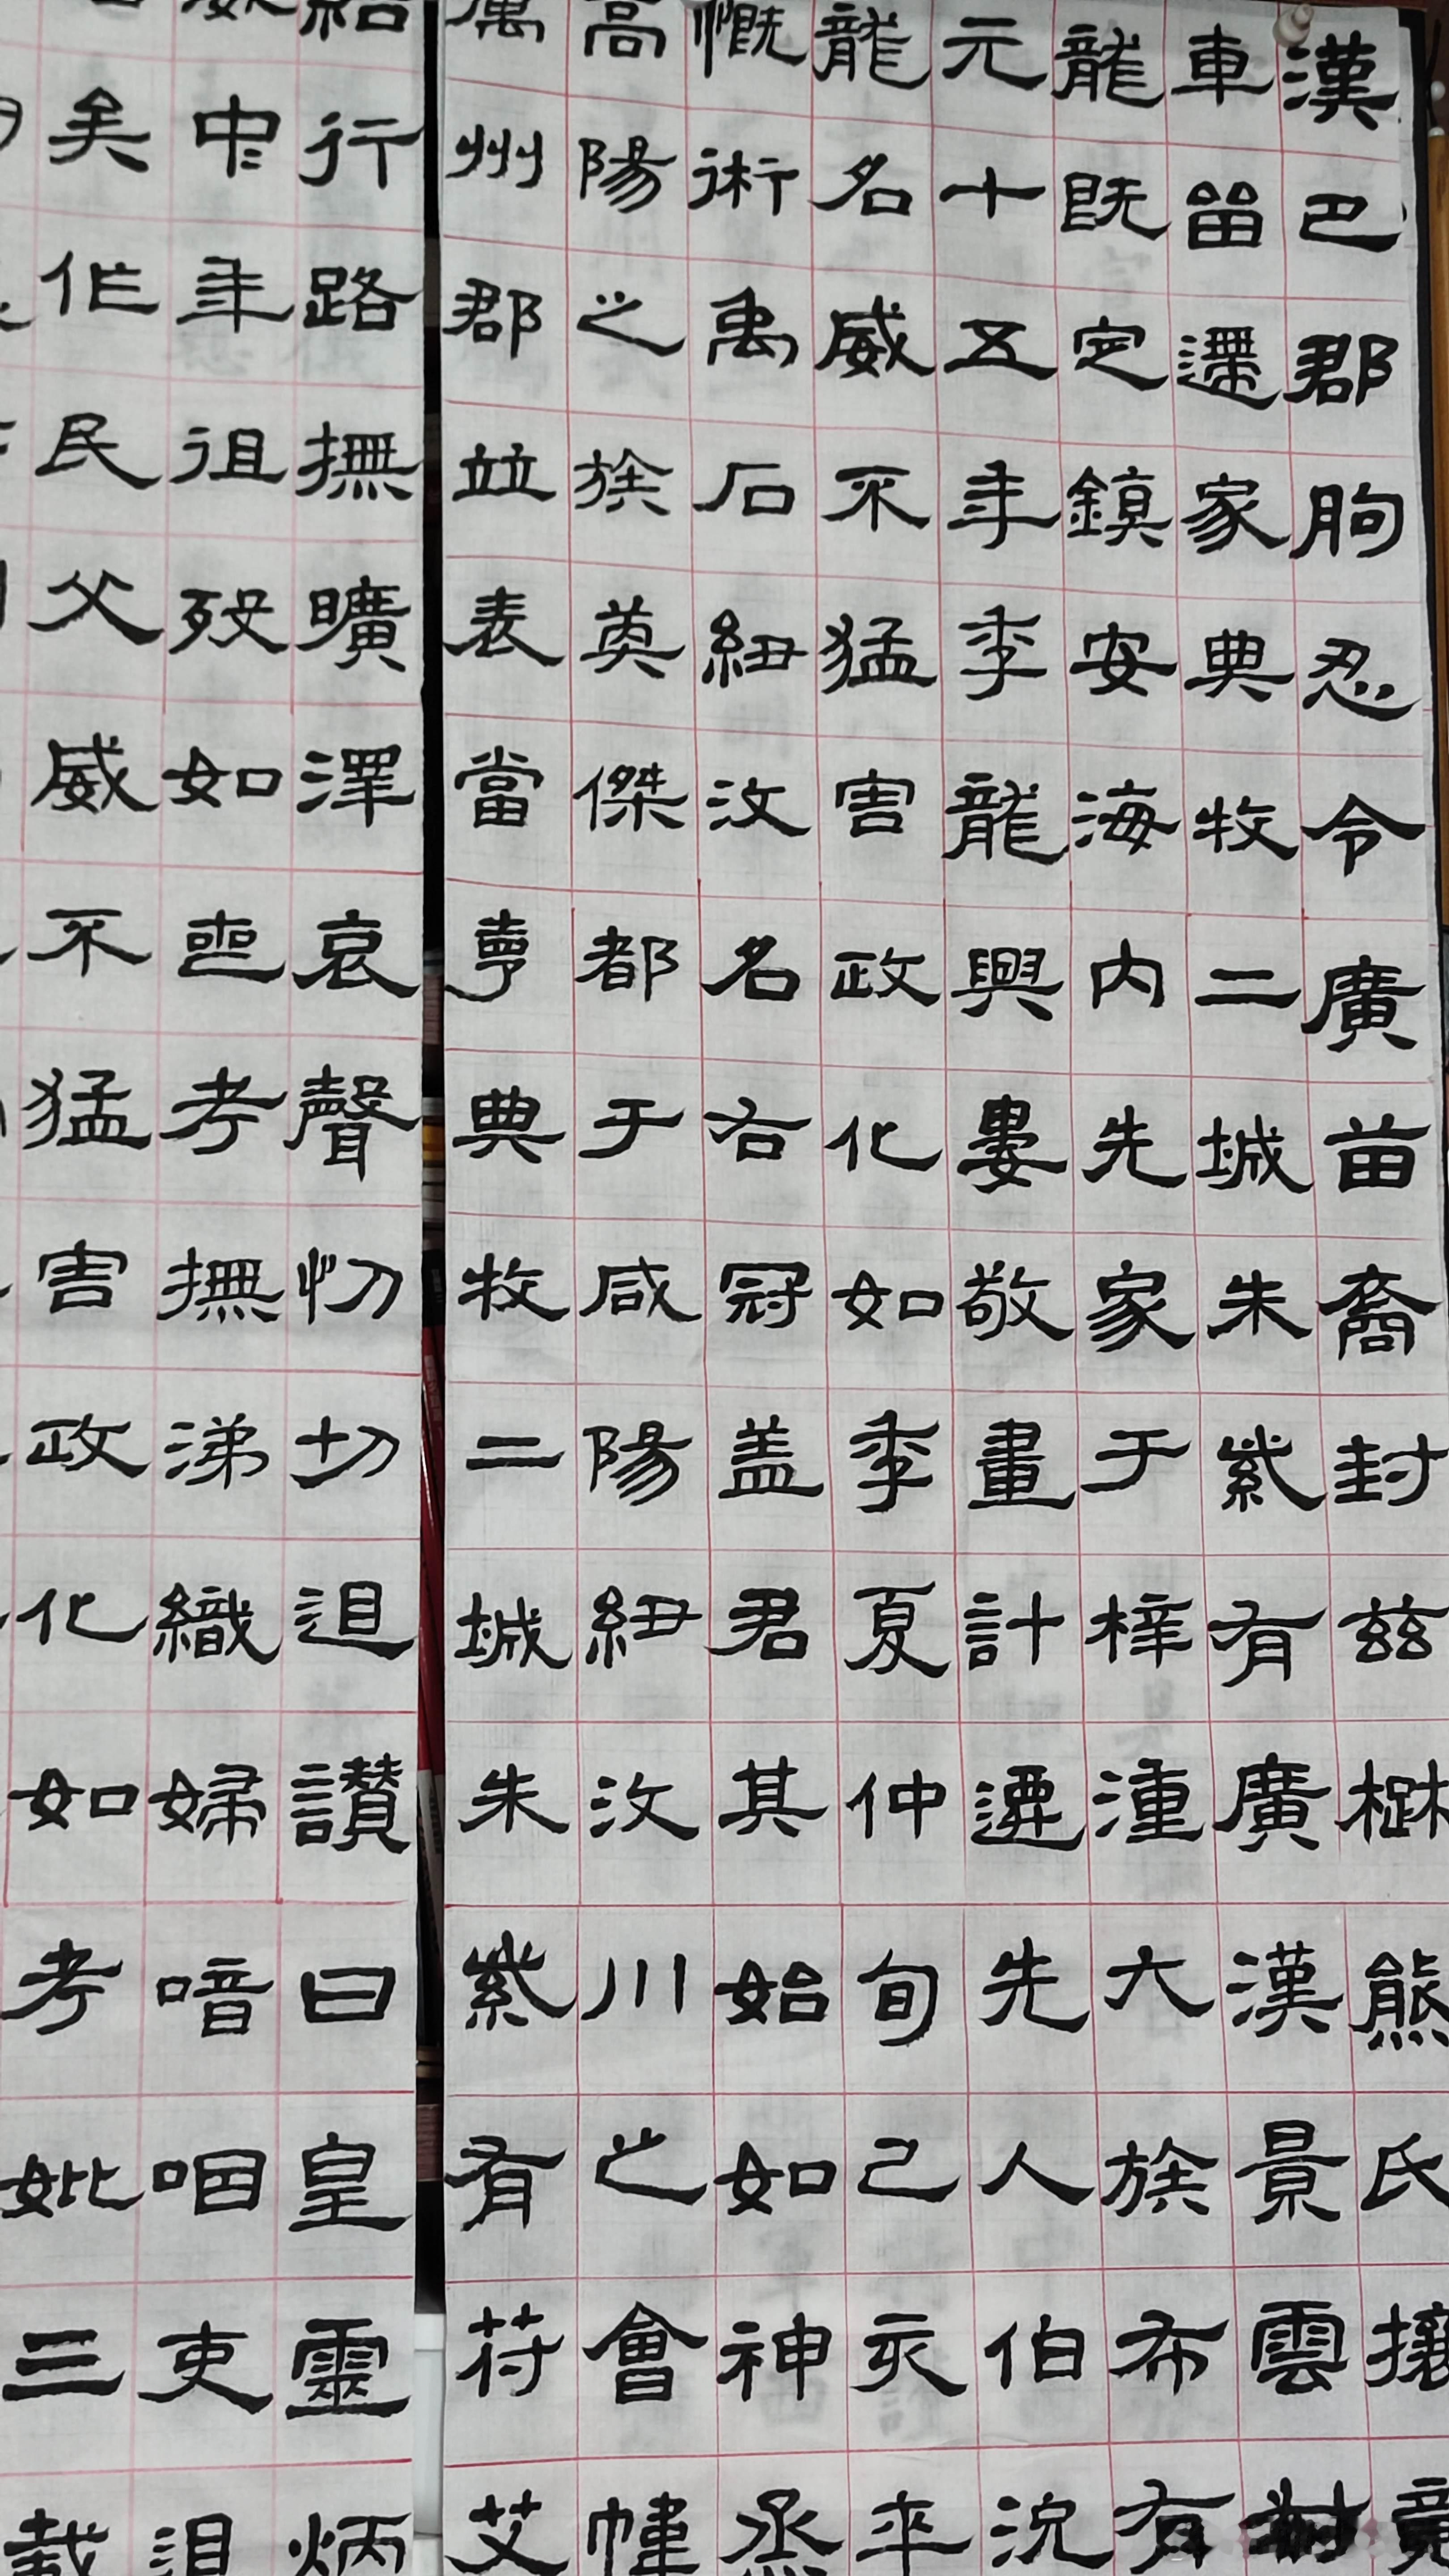 漢巴郡朐忍令廣苗裔封兹楙熊氏攘竟
車甾遷家典牧二城朱紫有廣漢景雲
龍既定鎮安海內先家于梓潼六族布有
元十五年季龍興婁敬畫計遷先人伯況
龍名威不猛害政化如季夏仲旬己亥卒
慨術禹石紐汶名右冠盖君其始如神丞
高陽之族英傑都于咸陽紐汶川之會幃
萬州郡並表當享典牧二城朱紫有苻艾
給行路撫曠澤哀聲忉切追讚曰皇靈炳
中年徂歿如喪考撫涕織婦喑咽吏泪
矣作民父威不猛害政化如考妣三載